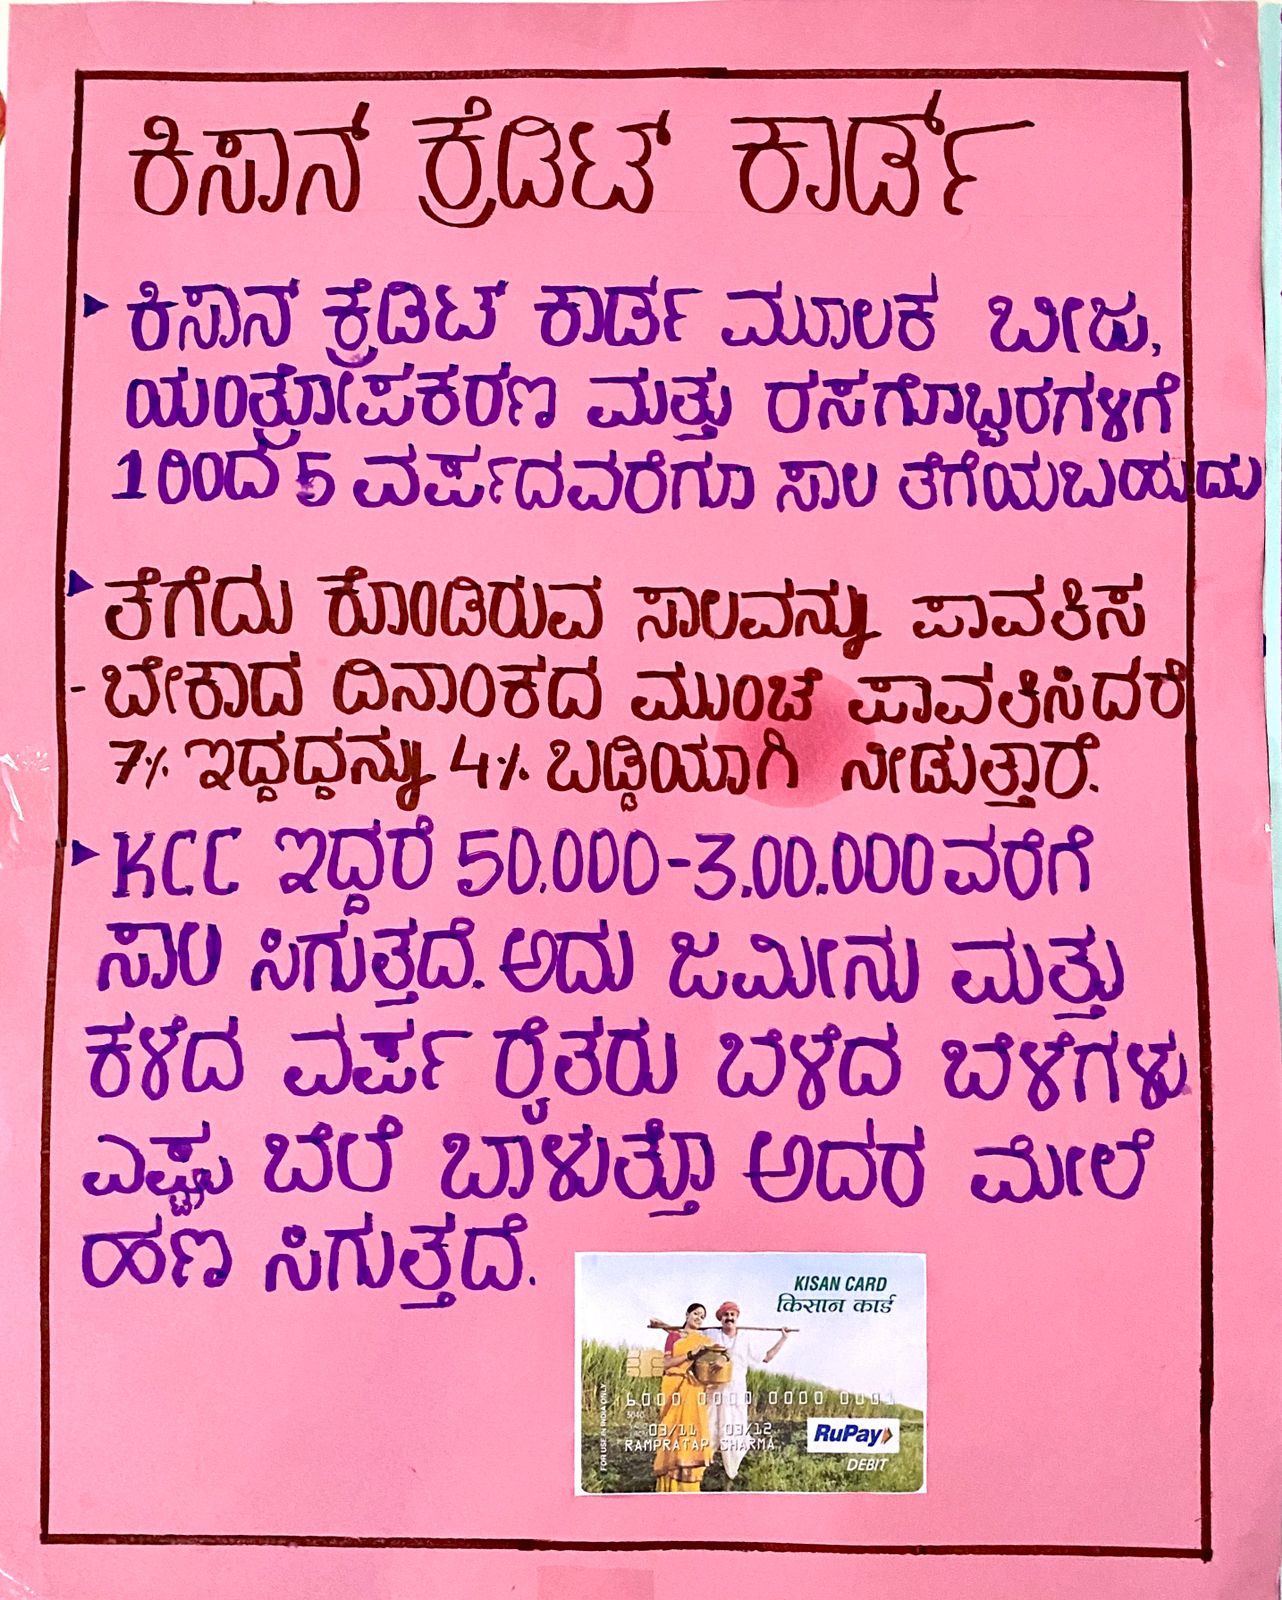 ಕಿಸಾನ್ ಕ್ರೆಡಿಟ್ ಕಾರ್ಡ್
ಕಿಸಾನ್ ಕ್ರೆಡಿಟ್ ಕಾರ್ಡ ಮೂಲಕ ಬೀಜ,
ಯಂತ್ರೋಪಕರಣ ಮತ್ತು ರಸಗೊಬ್ಬರಗಳಿಗೆ
1 ರಿಂದ 5 ವರ್ಷದವರೆಗೂ ಸಾಲ ತೆಗೆಯಬಹುದು
ತೆಗೆದು ಕೊಂಡಿರುವ ಸಾಲವನ್ನು ಪಾವತಿಸ
- ಬೇಕಾದ ದಿನಾಂಕದ ಮುಂಚೆ ಪಾವತಿಸಿದರೆ
7% ಇದ್ದದ್ದನ್ನು 4% ಬಡ್ಡಿಯಾಗಿ ನೀಡುತ್ತಾರೆ.
KCC ಇದ್ದರೆ 50,000-3,00,000 ವರೆಗೆ
ಸಾಲ ಸಿಗುತ್ತದೆ. ಅದು ಜಮೀನು ಮತ್ತು
ಕಳೆದ ವರ್ಷ ರೈತರು ಬೆಳೆದ ಬೆಳೆಗಳು
ಎಷ್ಟು ಬೆಲೆ ಬಾಳುತ್ತೊ ಅದರ ಮೇಲೆ
ಹಣ ಸಿಗುತ್ತದೆ.
KISAN CARD
किसान कार्ड
6000 0000 0000 0001
03/11 03/12
RAMPRATAP SHARMA
RuPay
DEBIT
FOR USE IN INDIA ONLY